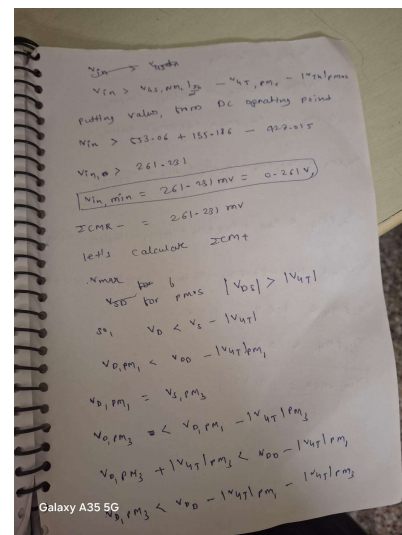 Vin > VGS,NM1 + V4T,PM1 - |VTh|pmos
Putting values, from DC operating point
Vin > 553.06 + 135.186 - 427.015
Vin, > 261.231
Vin, min = 261.231 mV = 0.261 V,
ICMR- = 261.231 mV
let's calculate ICM+
Vmax for
VSD for pmos |VDS| > |V4T|
so, VD < VS - |V4T|
VD,PM1 < VDD - |V4T|PM1
VD,PM1 = VS,PM3
VD,PM3 < VD,PM1 - |V4T|PM3
VD,PM3 + |V4T|PM3 < VDD - |V4T|PM1
VD,PM3 < VDD - |V4T|PM1 - |V4T|PM3
Galaxy A35 5G